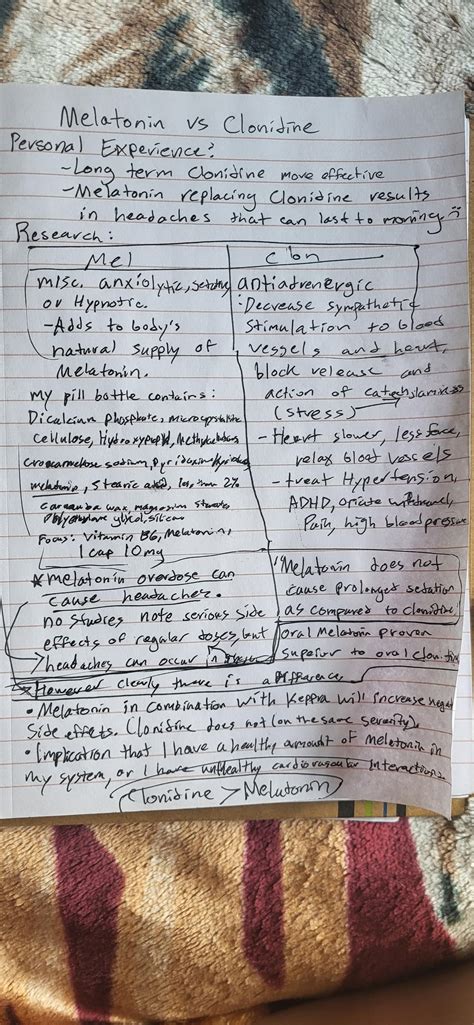 Melatonin vs Clonidine
Personal Experience:
- Long term Clonidine more effective
- Melatonin replacing Clonidine results
in headaches that can last to morning
Research:
Mel
misc. anxiolytic, sedative
or Hypnotic.
- Adds to body's
natural supply of
Melatonin.
my pill bottle contains:
Dicalcium phosphate, microcrystalline
Cellulose, Hydroxypropyl, Methylcellulose
croscarmellose sodium, Pyridoxine
melatonin, Stearic acid, less than 2%
carnauba wax, magnesium stearate
glycol, silica
Focus: Vitamin B6, Melatonin,
1 cap 10mg
*melatonin overdose can
cause headaches.
no studies note serious side
effects of regular doses, but
headaches can occur
cln
antiadrenergic
: Decrease sympathetic
Stimulation to blood
vessels and heart,
block release and
action of
(stress)
- Heart slower, less force,
relax bloot vessels
- treat Hypertension,
ADHD, opiate withdrawl,
Pain, high blood pressure
"Melatonin does not
cause prolonged sedation
as compared to clonidine
Oral Melatonin proven
Superior to oral clonidine
* However clearly there is a Difference
• Melatonin in combination with Keppra will increase
Side effects. Clonidine does not (on the same severity).
• Implication that I have a healthy amount of melatonin in
my system, or I have unhealthy cardiovascular interactions
Clonidine > Melatonin